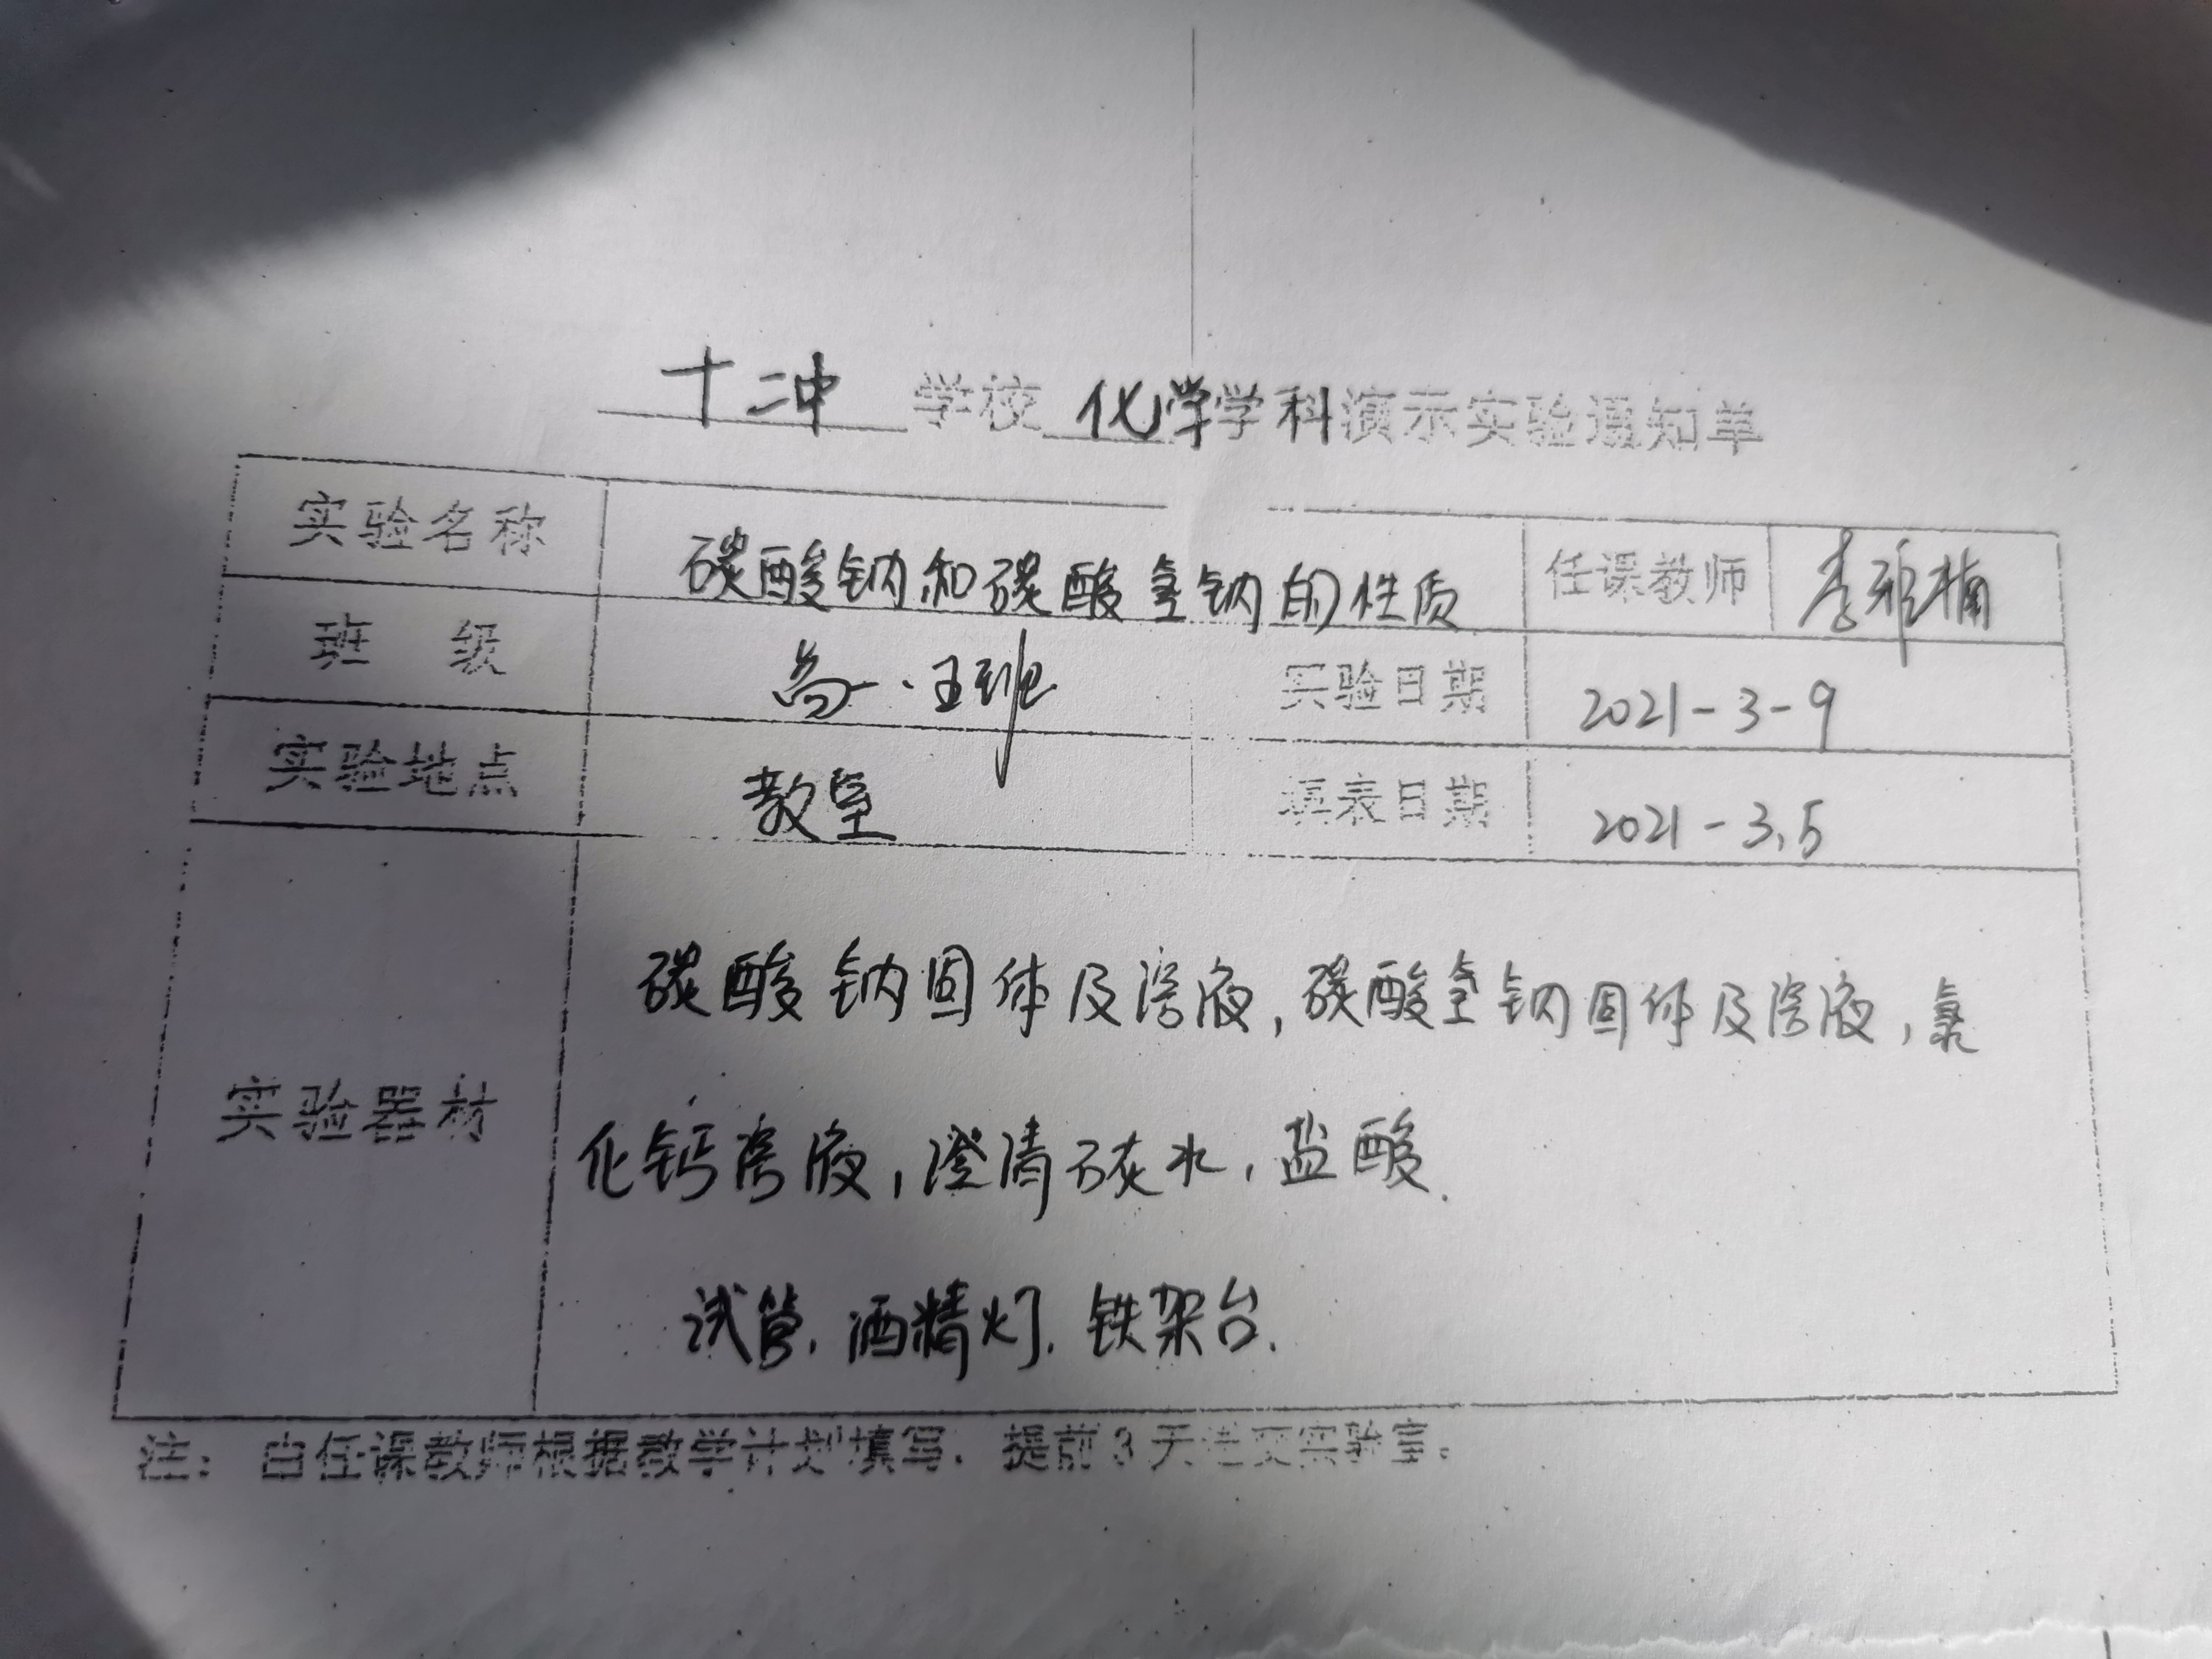 十二中 学校 化学 学科演示实验通知单
实验名称 碳酸钠和碳酸氢钠的性质 任课教师 李雅楠
班 级 高一·五班 实验日期 2021-3-9
实验地点 教室 填表日期 2021-3.5
实验器材 碳酸钠固体及溶液,碳酸氢钠固体及溶液,氯
化钙溶液,澄清碳水,盐酸.
试管.酒精灯.铁架台.
注: 由任课教师根据教学计划填写. 提前3天送交实验室.